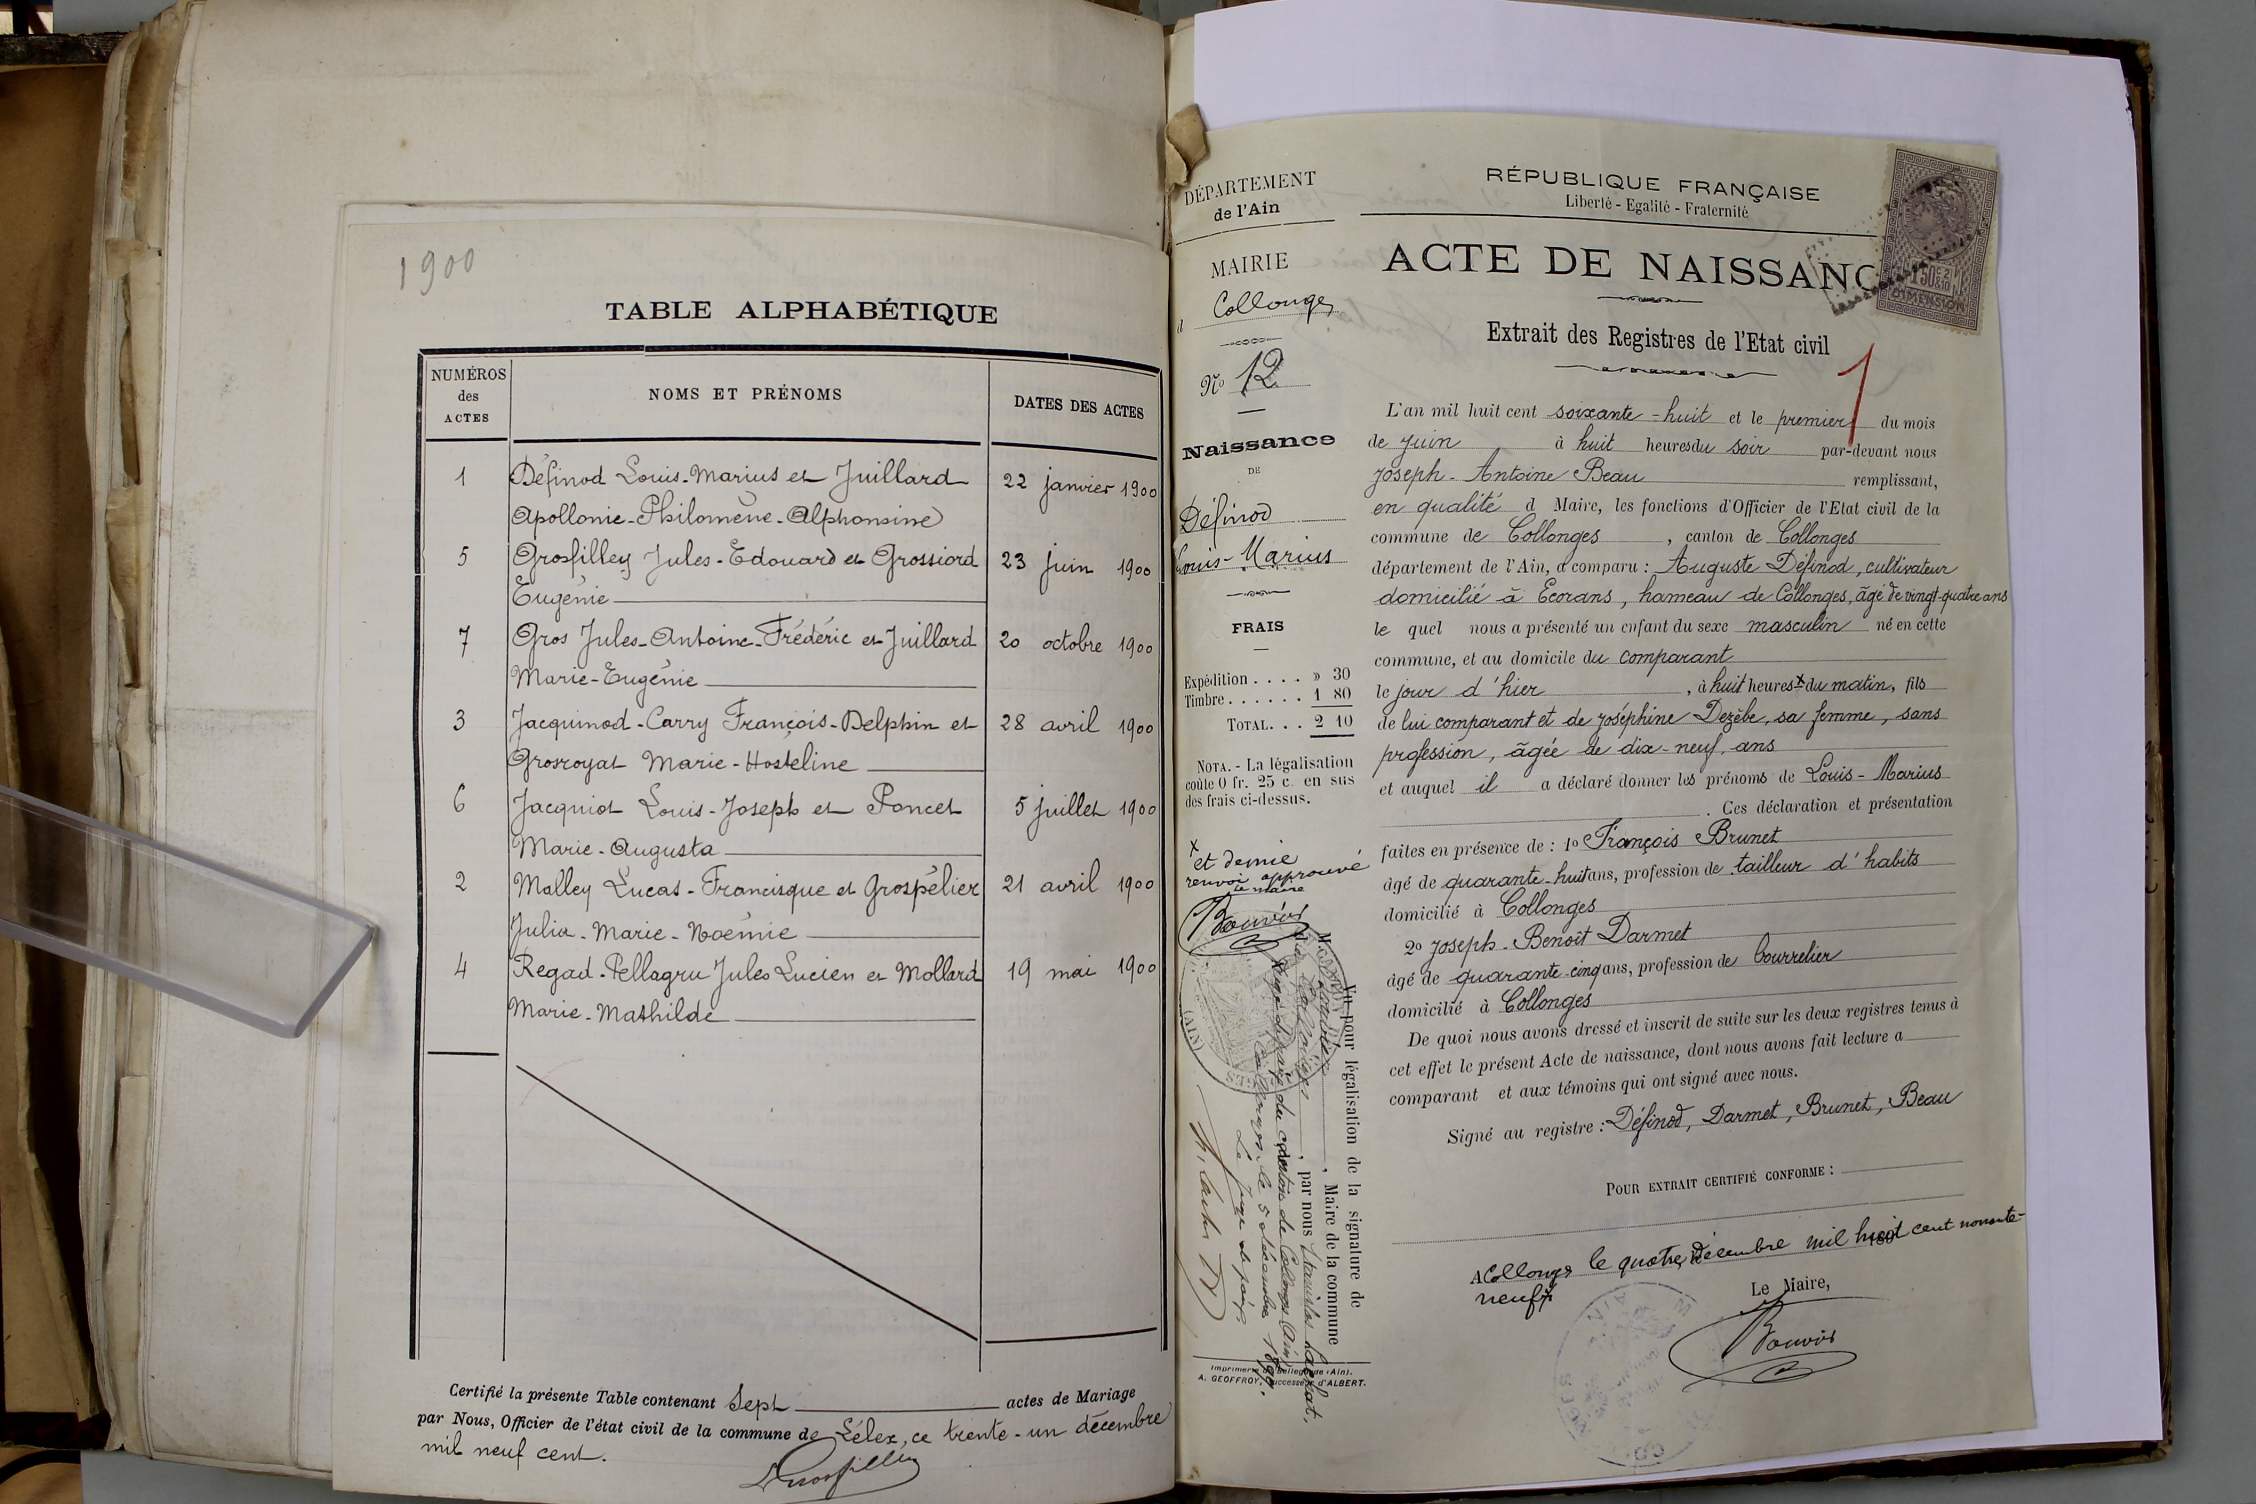 1900
TABLE ALPHABÉTIQUE
NUMÉROS
des
ACTES
NOMS ET PRÉNOMS
DATES DES ACTES
1 Définod Louis-Marius et Juillard 22 janvier 1900
Apollonie-Philomène-Alphonsine
5 Grosfilley Jules-Edouard et Grossiord 23 juin 1900
Eugénie
7 Gros Jules-Antoine-Frédéric et Juillard 20 octobre 1900
Marie-Eugénie
3 Jacquinod-Carry François-Delphin et 28 avril 1900
Grosroyat Marie-Hosteline
6 Jacquiot Louis-Joseph et Poncet 5 juillet 1900
Marie-Augusta
2 Malley Lucas-Francisque et Grospélier 21 avril 1900
Julia-Marie-Noémie
4 Regad-Pellagru Jules Lucien et Mollard 19 mai 1900
Marie-Mathilde
Certifié la présente Table contenant Sept actes de Mariage
par Nous, Officier de l'état civil de la commune de Lélex, ce trente-un décembre
mil neuf cent.
DÉPARTEMENT
de l'Ain
MAIRIE
d Collonges
No 12
Naissance
DE
Définod
Louis-Marius
FRAIS
Expédition . . . . » 30
Timbre . . . . . . 1 80
TOTAL. . . 2 10
NOTA. - La légalisation
coûte 0 fr. 25 c. en sus
des frais ci-dessus.
x
et demie
renvoi approuvé
Le maire
Bouvier
Vu pour légalisation de la signature de
M. Bouvier, Maire de la commune
de Collonges, par nous Stanislas
Juge de paix du canton de Collonges (Ain)
Collonges le 5 décembre 1899.
Le Juge de paix
Imprimerie Bellegarde (Ain).
A. GEOFFROY, successeur d'ALBERT.
RÉPUBLIQUE FRANÇAISE
Liberté - Egalité - Fraternité
ACTE DE NAISSANC
DIMENSION
Extrait des Registres de l'Etat civil
1
L'an mil huit cent soixante-huit et le premier du mois
de juin à huit heures du soir par-devant nous
Joseph-Antoine Beau remplissant,
en qualité d Maire, les fonctions d'Officier de l'Etat civil de la
commune de Collonges, canton de Collonges
département de l'Ain, a comparu : Auguste Définod, cultivateur
domicilié à Ecorans, hameau de Collonges, âgé de vingt-quatre ans
le quel nous a présenté un enfant du sexe masculin né en cette
commune, et au domicile du comparant
le jour d'hier, à huit heures x du matin, fils
de lui comparant et de Joséphine Dezèbe, sa femme, sans
profession, âgée de dix-neuf ans
et auquel il a déclaré donner les prénoms de Louis-Marius
. Ces déclaration et présentation
faites en présence de : 1o François Brunet
âgé de quarante-huit ans, profession de tailleur d'habits
domicilié à Collonges
2o Joseph-Benoît Darmet
âgé de quarante-cinq ans, profession de bourrelier
domicilié à Collonges
De quoi nous avons dressé et inscrit de suite sur les deux registres tenus à
cet effet le présent Acte de naissance, dont nous avons fait lecture a
comparant et aux témoins qui ont signé avec nous.
Signé au registre : Définod, Darmet, Brunet, Beau
POUR EXTRAIT CERTIFIÉ CONFORME :
A Collonges le quatre décembre mil huit cent nonante-
neuf
Le Maire,
Bouvier